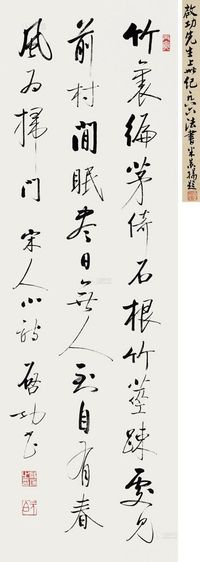 竹裏編茅倚石根竹莖疎處見
前村閒眠盡日無人到自有春
風为掃門 宋人小詩 啟功書
啟功先生上世纪法書米景揚題